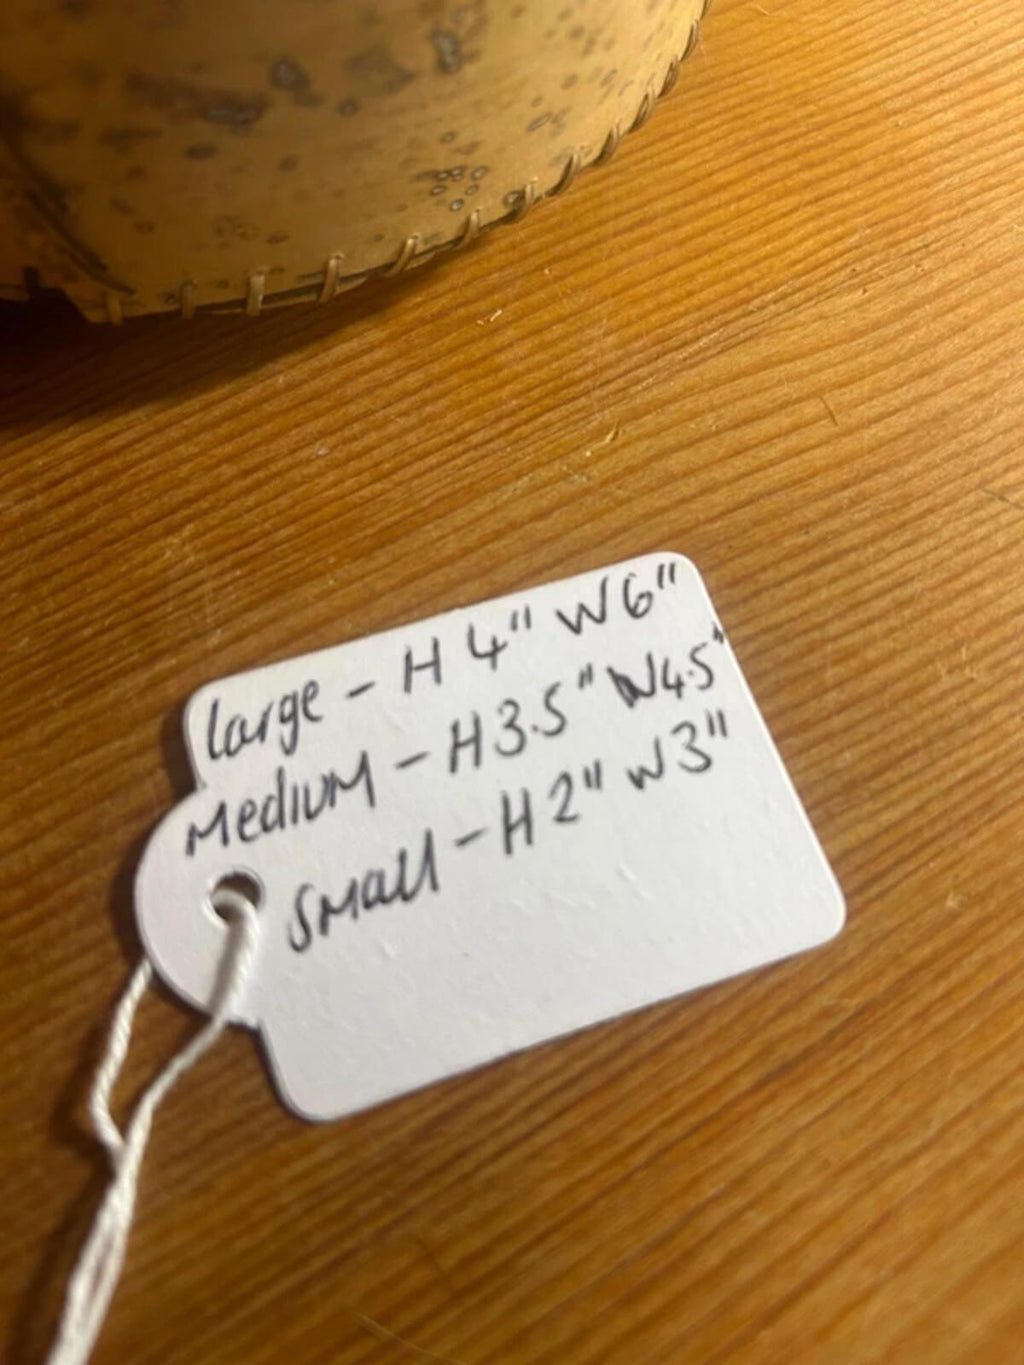 large - H 4" W 6"
Medium - H 3.5" W4.5"
Small - H 2" W 3"